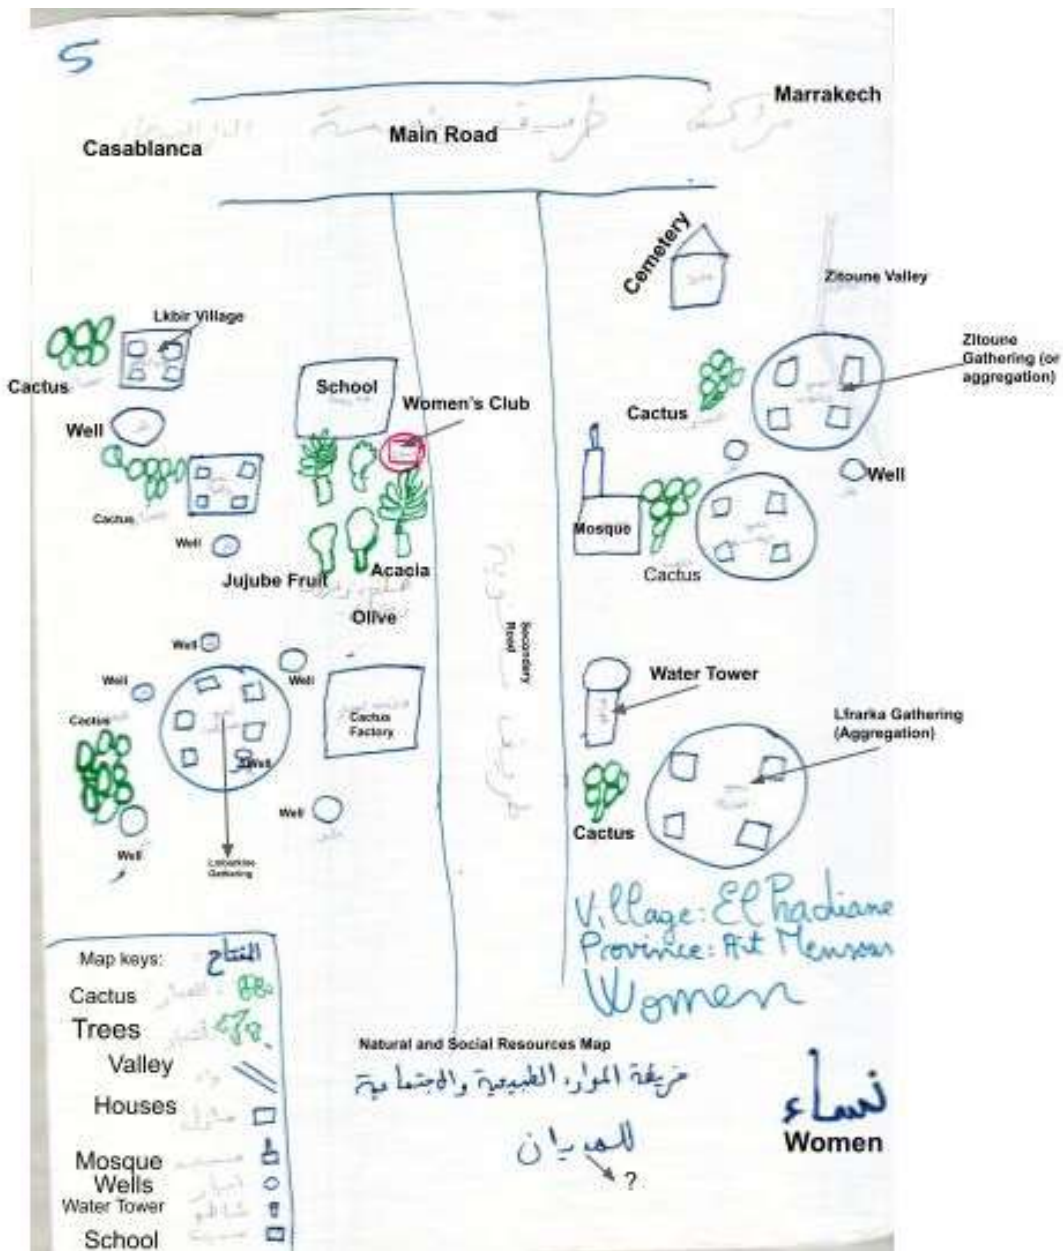 5
Marrakech
Main Road
Casablanca
Cemetery
Zitoune Valley
Lkbir Village
Zitoune
Gathering (or
aggregation)
School
Cactus
Women's Club
Cactus
Well
Well
Mosque
Cactus
Well
Cactus
Jujube Fruit
Acacia
Olive
Secondary
Road
Well
Well
Well
Water Tower
Cactus
Cactus
Factory
Lfrarka Gathering
(Aggregation)
Well
Well
Cactus
Well
Gathering
Village: El Hadiane
Province: Ait Mensour
Women
Map keys:
المفتاح
Cactus
Trees
Valley
Houses
Mosque
Wells
Water Tower
School
Natural and Social Resources Map
خريطة الموارد الطبيعية والاجتماعية
?
نساء
Women